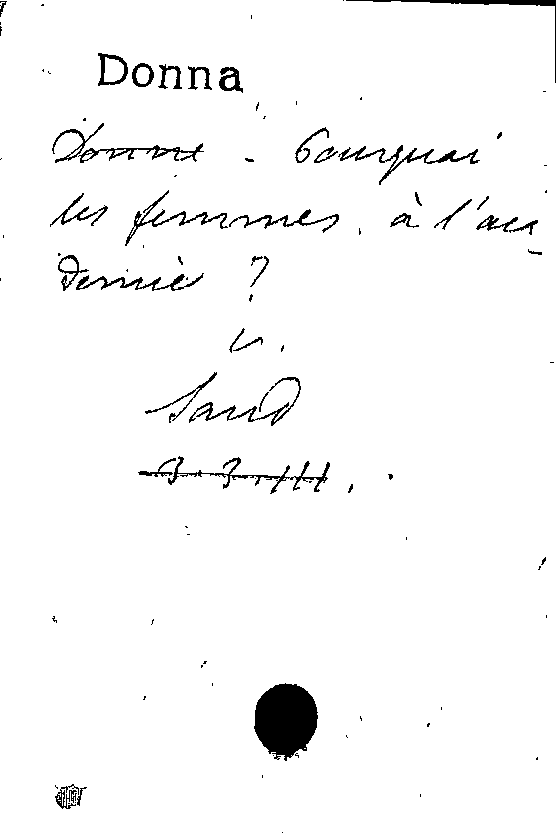 Donna
Donne - Pourquoi
les femmes à l'aca
demie ?
v.
Sand
3. 3. III.